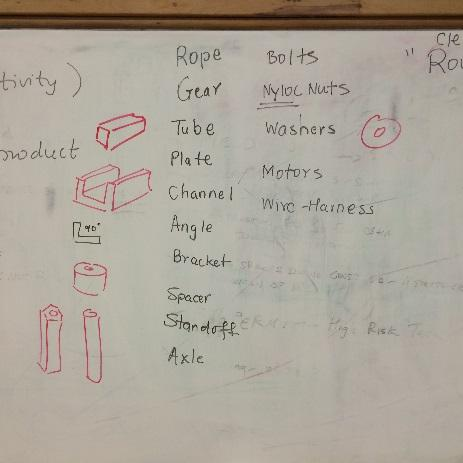 tivity )
product
Rope
Gear
Tube
Plate
Channel
90°
Angle
Bracket
Spacer
Standoff
Axle
Bolts
Nyloc Nuts
Washers
Motors
Wire-Harness
Cle
" Rou